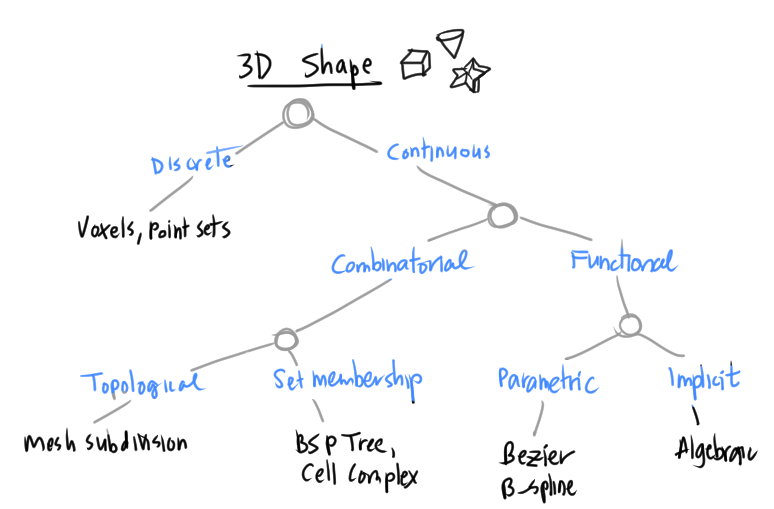 3D Shape
Discrete
Continuous
Voxels, point sets
Combinatorial
Functional
Topological
Set membership
Parametric
Implicit
mesh subdivision
BSP Tree,
Cell Complex
Bezier
B-spline
Algebraic